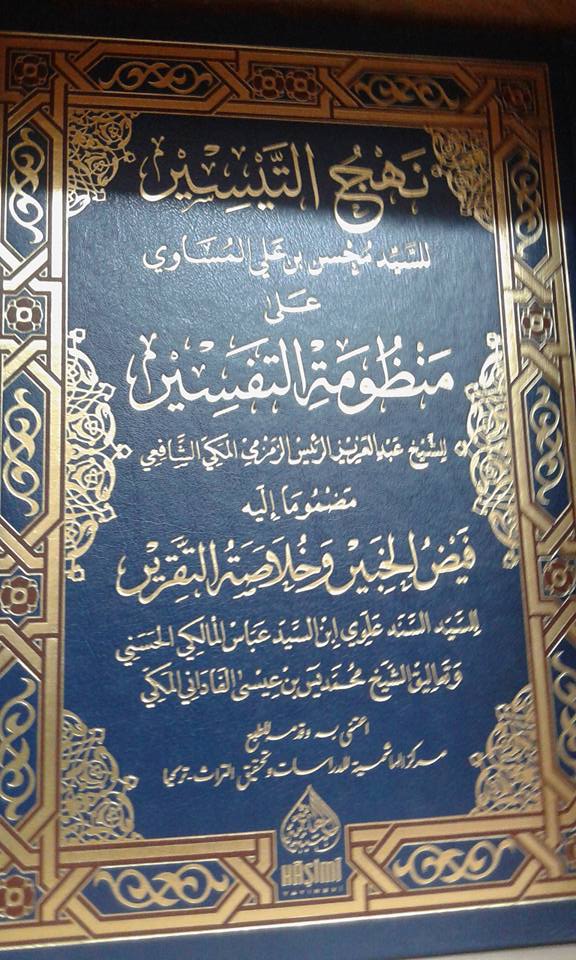 نَهْجُ التَّيْسِيْر
للسَّيِّد مُحْسِن بن عَلي المُسَاوي
عَلَى
مَنْظُومَةِ التَّفْسِيْر
للشَّيْخ عَبدالعَزيز الرئيس الزمزمي المكي الشَّافِعي
مَضْمُومَا إِلَيه
فَيْضُ الخَبِيْر وَخُلَاصَةُ التَّقْرِيْر
للسَّيد السَّنَد عَلوي ابن السَّيد عَبَّاس المَالِكي الحَسَني
وَتعاليق الشَّيخ محُمَّد يٰس بن عيسىٰ الفَاداني المكي
اعتنى به وقدمه للطبع
مركز الهاشمية للدراسات وتحقيق التراث - تركيا
HÂŞİMÎ
YAYINEVİ